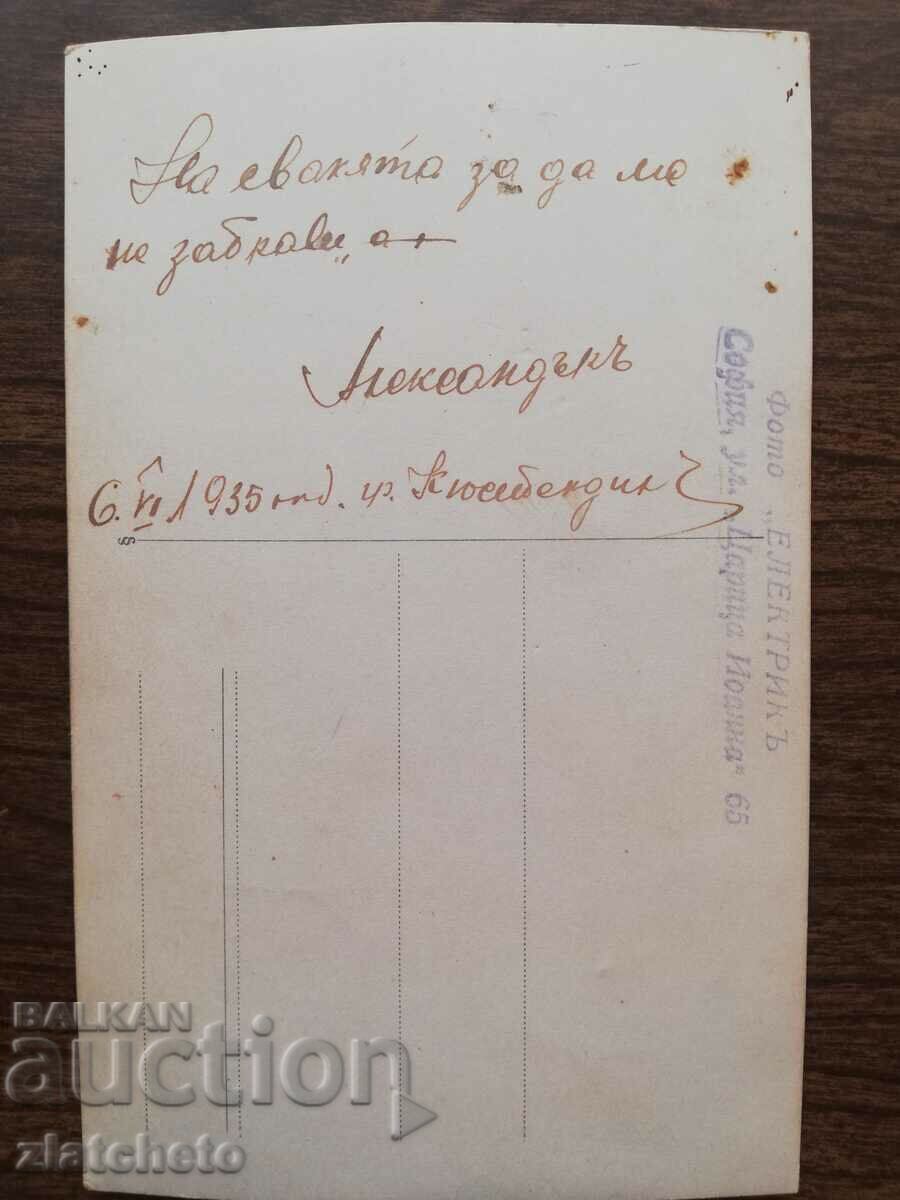 На свакята за да ме
не забрави
Александъръ
6.VI 1935 год. гр. Кюстендилъ
Фото „ЕЛЕКТРИКЪ
София, ул. „Царица Иоанна“ 65
BALKAN
auction
zlatcheto